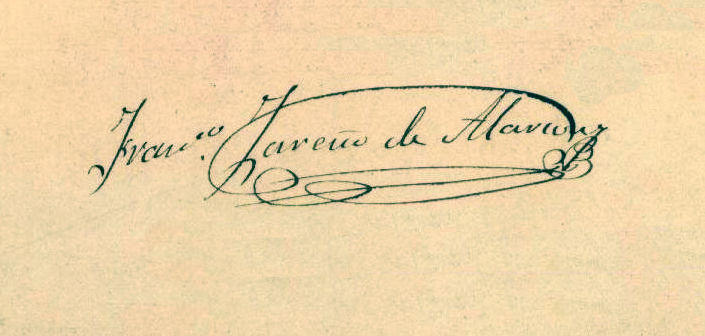 Fran.co Jareño de Alarcon